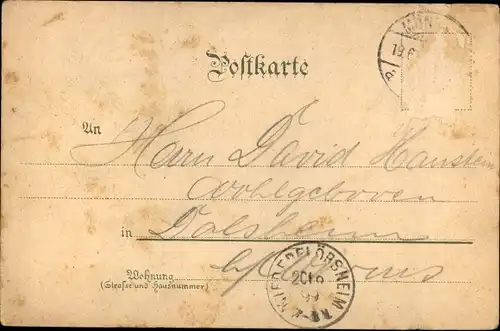 Postkarte
An
Herrn David Hanstein
Wohlgeboren
in Dalsheim
b/ Worms
Wohnung
(Strasse und Hausnummer)
NIEDERFLÖRSHEIM